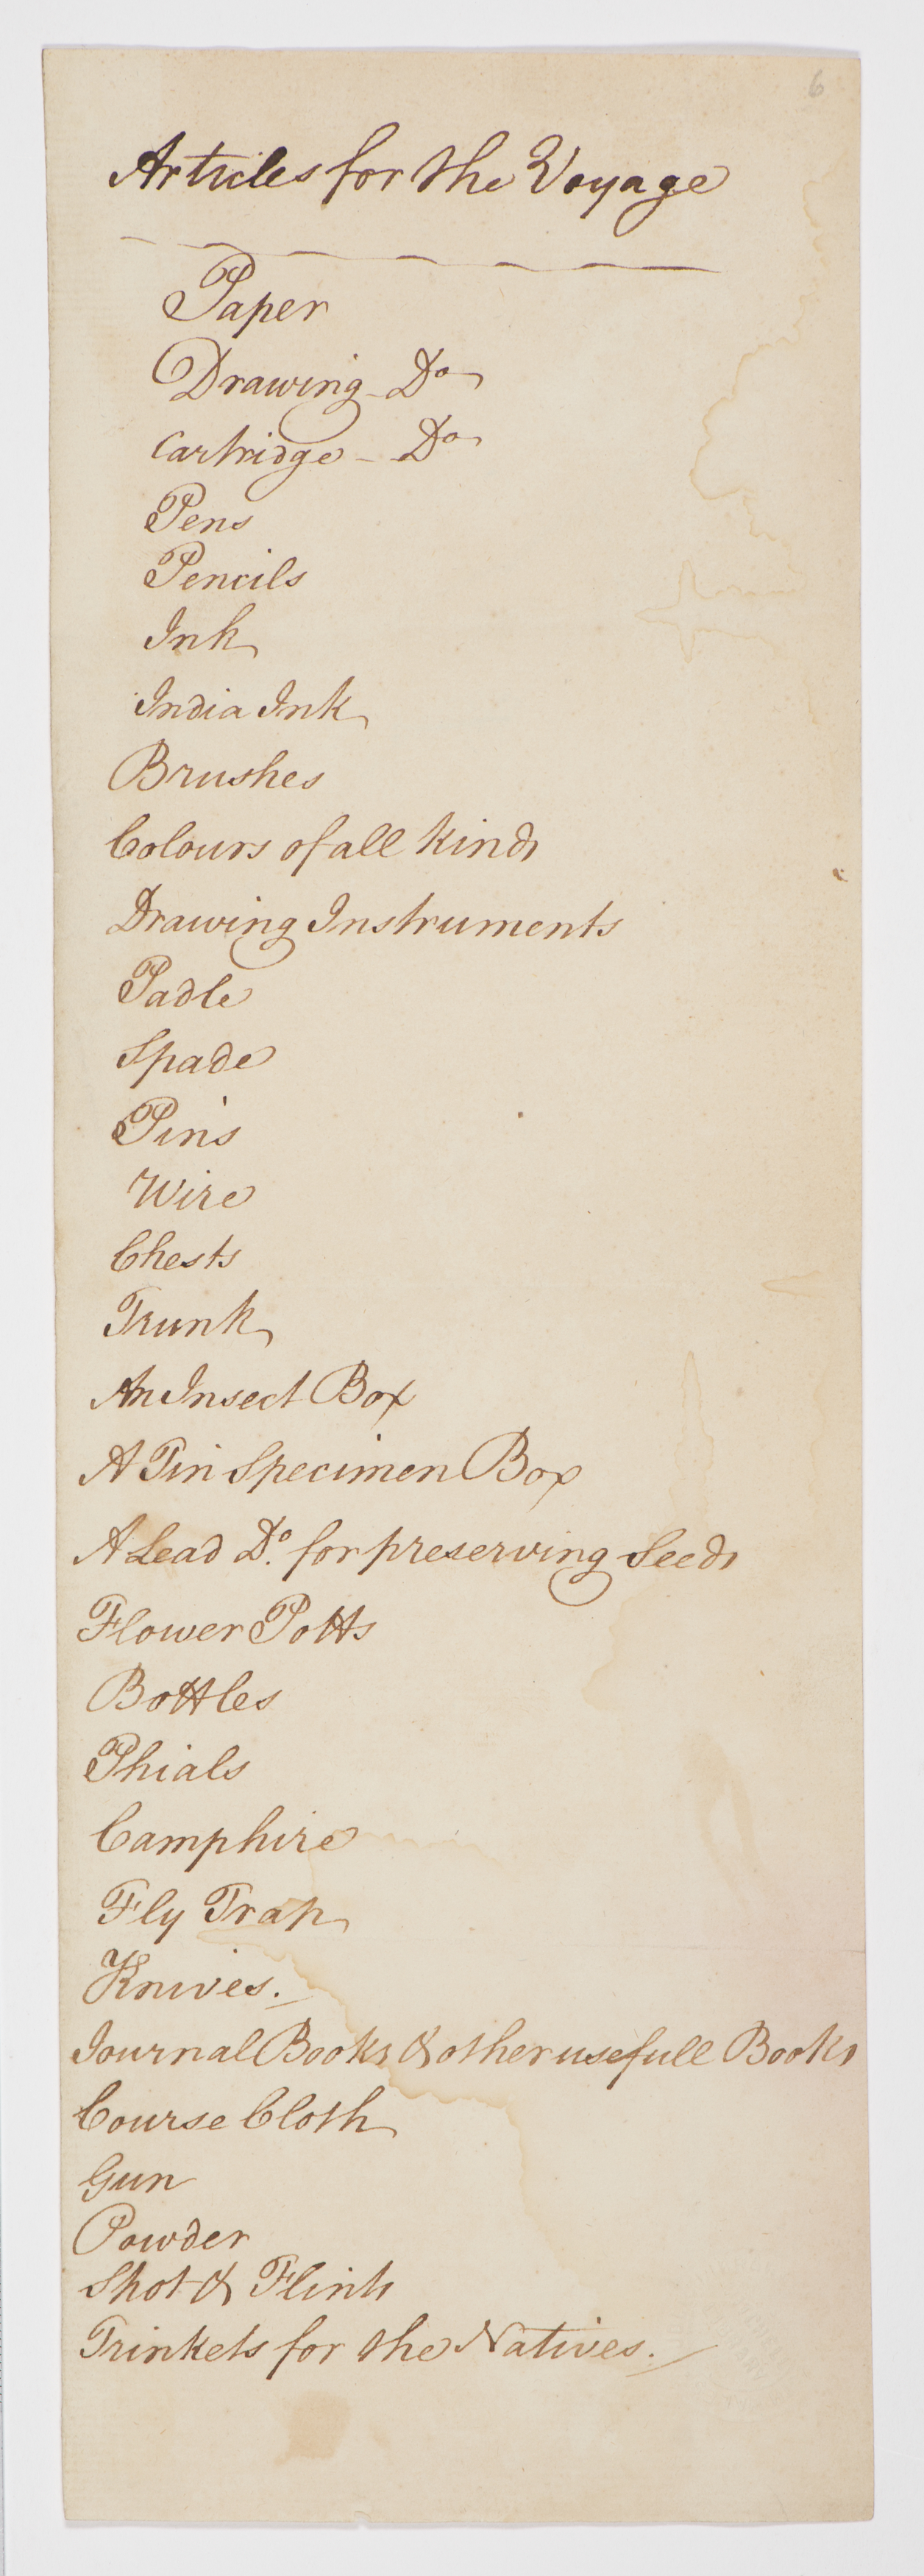 6
Articles for the Voyage
Paper
Drawing Do
Cartridge - Do
Pens
Pencils
Ink
India Ink
Brushes
Colours of all kinds
Drawing Instruments
Padle
Spade
Pins
Wire
Chests
Trunk
An Insect Box
A Tin Specimen Box
A Lead Do. for preserving Seeds
Flower Potts
Bottles
Phials
Camphire
Fly Trap
Knives.
Journal Books & other usefull Books
Course Cloth
Gun
Powder
Shot & Flints
Trinkets for the Natives.